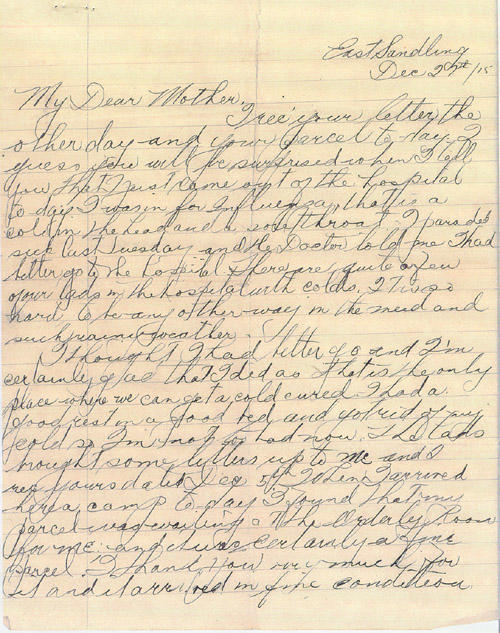 East Sandling
Dec 27th/15
My Dear Mother,
I rec'd your letter the
other day and your parcel to day. I
guess you will be surprised when I tell
you that I just came out of the hospital
to day. I was in for Influenza, that is a
cold in the head and a sore throat. I paraded
sick last Tuesday and the Doctor told me I had
better go to the hospital. There are quite a few
of our lads in the hospital with colds. It is so
hard to be any other way in the mud and
such rainy weather.
I thought I had better go and I'm
certainly glad that I did as that is the only
place where we can get a cold cured. I had a
good rest in a good bed and got rid of my
cold so I'm not so bad now. The lads
brought some letters up to me and I
rec yours dated Dec 5th. When I arrived
here in camp to day I found that my
parcel was waiting at the Orderly Room
for me and it was certainly a fine
parcel. I thank you very much for
it and it arrived in fine condition.